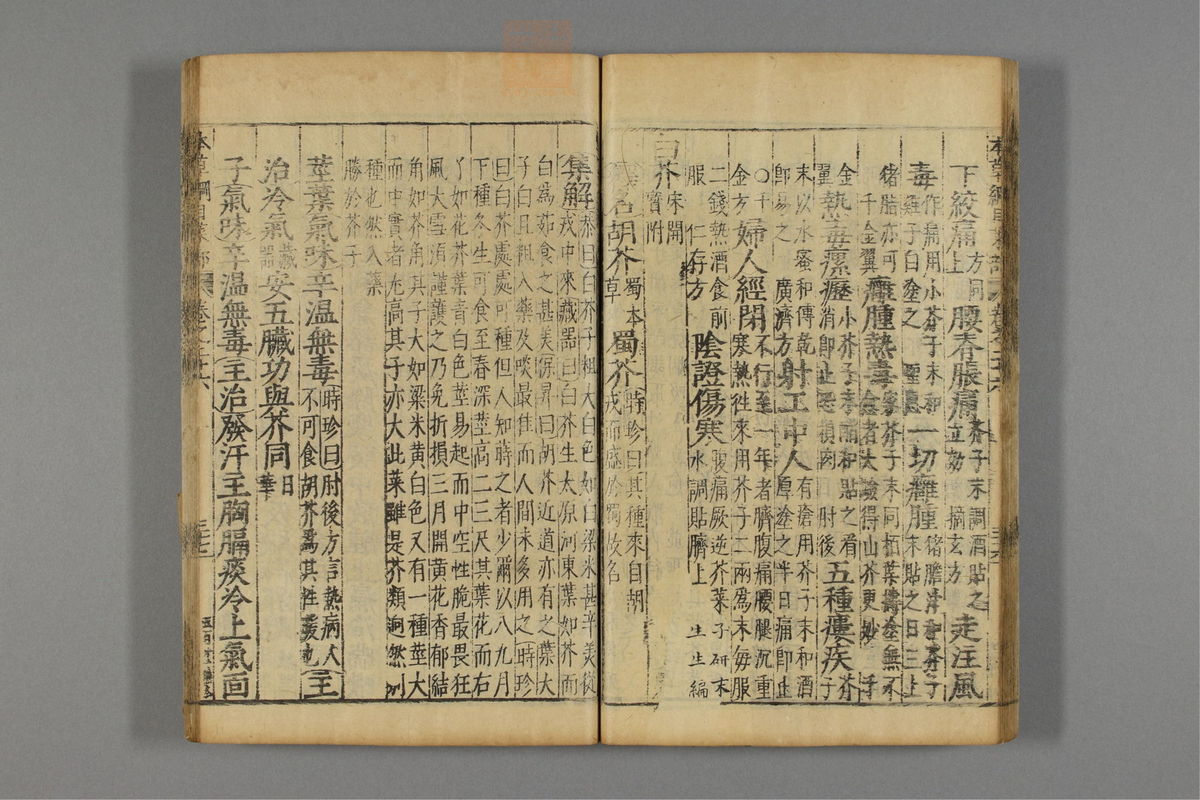 下絞痛
上方同
腰脊脹痛
芥子末調酒貼之
立効 摘玄方
走注風
毒
作痛用小芥子末和
雞子白塗之 聖惠
一切癰腫
猪膽汁和芥子
末貼之日三上
猪脂亦可
千金翼
癰腫熱毒
家芥子末同柏葉擣塗無不
愈者大驗得山芥更妙 千
金
翼
熱毒瘰癧
小芥子末醋和貼之看
消即止恐損肉 肘後
五種瘻疾
芥子
末以水蜜和傅乾
即易之 廣濟方
射工中人
有瘡用芥子末和酒
厚塗之半日痛即止
〇千
金方
婦人經閉
不行至一年者臍腹痛腰腿沉重
寒熱徃來用芥子二兩爲末每服
二錢熱酒食前
服 仁存方
陰證傷寒
腹痛厥逆芥菜子研末
水調貼臍上 生生編
白芥
宋開
寶附
釋名胡芥
蜀本
草
蜀芥
時珍曰其種來自胡
戎而盛於蜀故名
集解
恭曰白芥子粗大白色如白粱米甚辛美從
戎中來藏器曰白芥生太原河東葉如芥而
白爲茹食之甚美保昇曰胡芥近道亦有之葉大
子白且粗入藥及啖最佳而人間未多用之時珍
曰白芥處處可種但人知蒔之者少爾以八九月
下種冬生可食至春深莖高二三尺其葉花而有
丫如花芥葉青白色莖易起而中空性脆最畏狂
風大雪須謹護之乃免折損三月開黄花香郁結
角如芥角其子大如粱米黄白色又有一種莖大
而中實者尤高其子亦大此菜雖是芥類迥然別
種也然入藥
勝於芥子
莖葉氣味辛溫無毒
時珍曰肘後方言熱病人
不可食胡芥爲其性煖也
主
治冷氣
藏
器
安五臟功與芥同
日
華
子氣味辛溫無毒主治發汗主胸膈痰冷上氣面